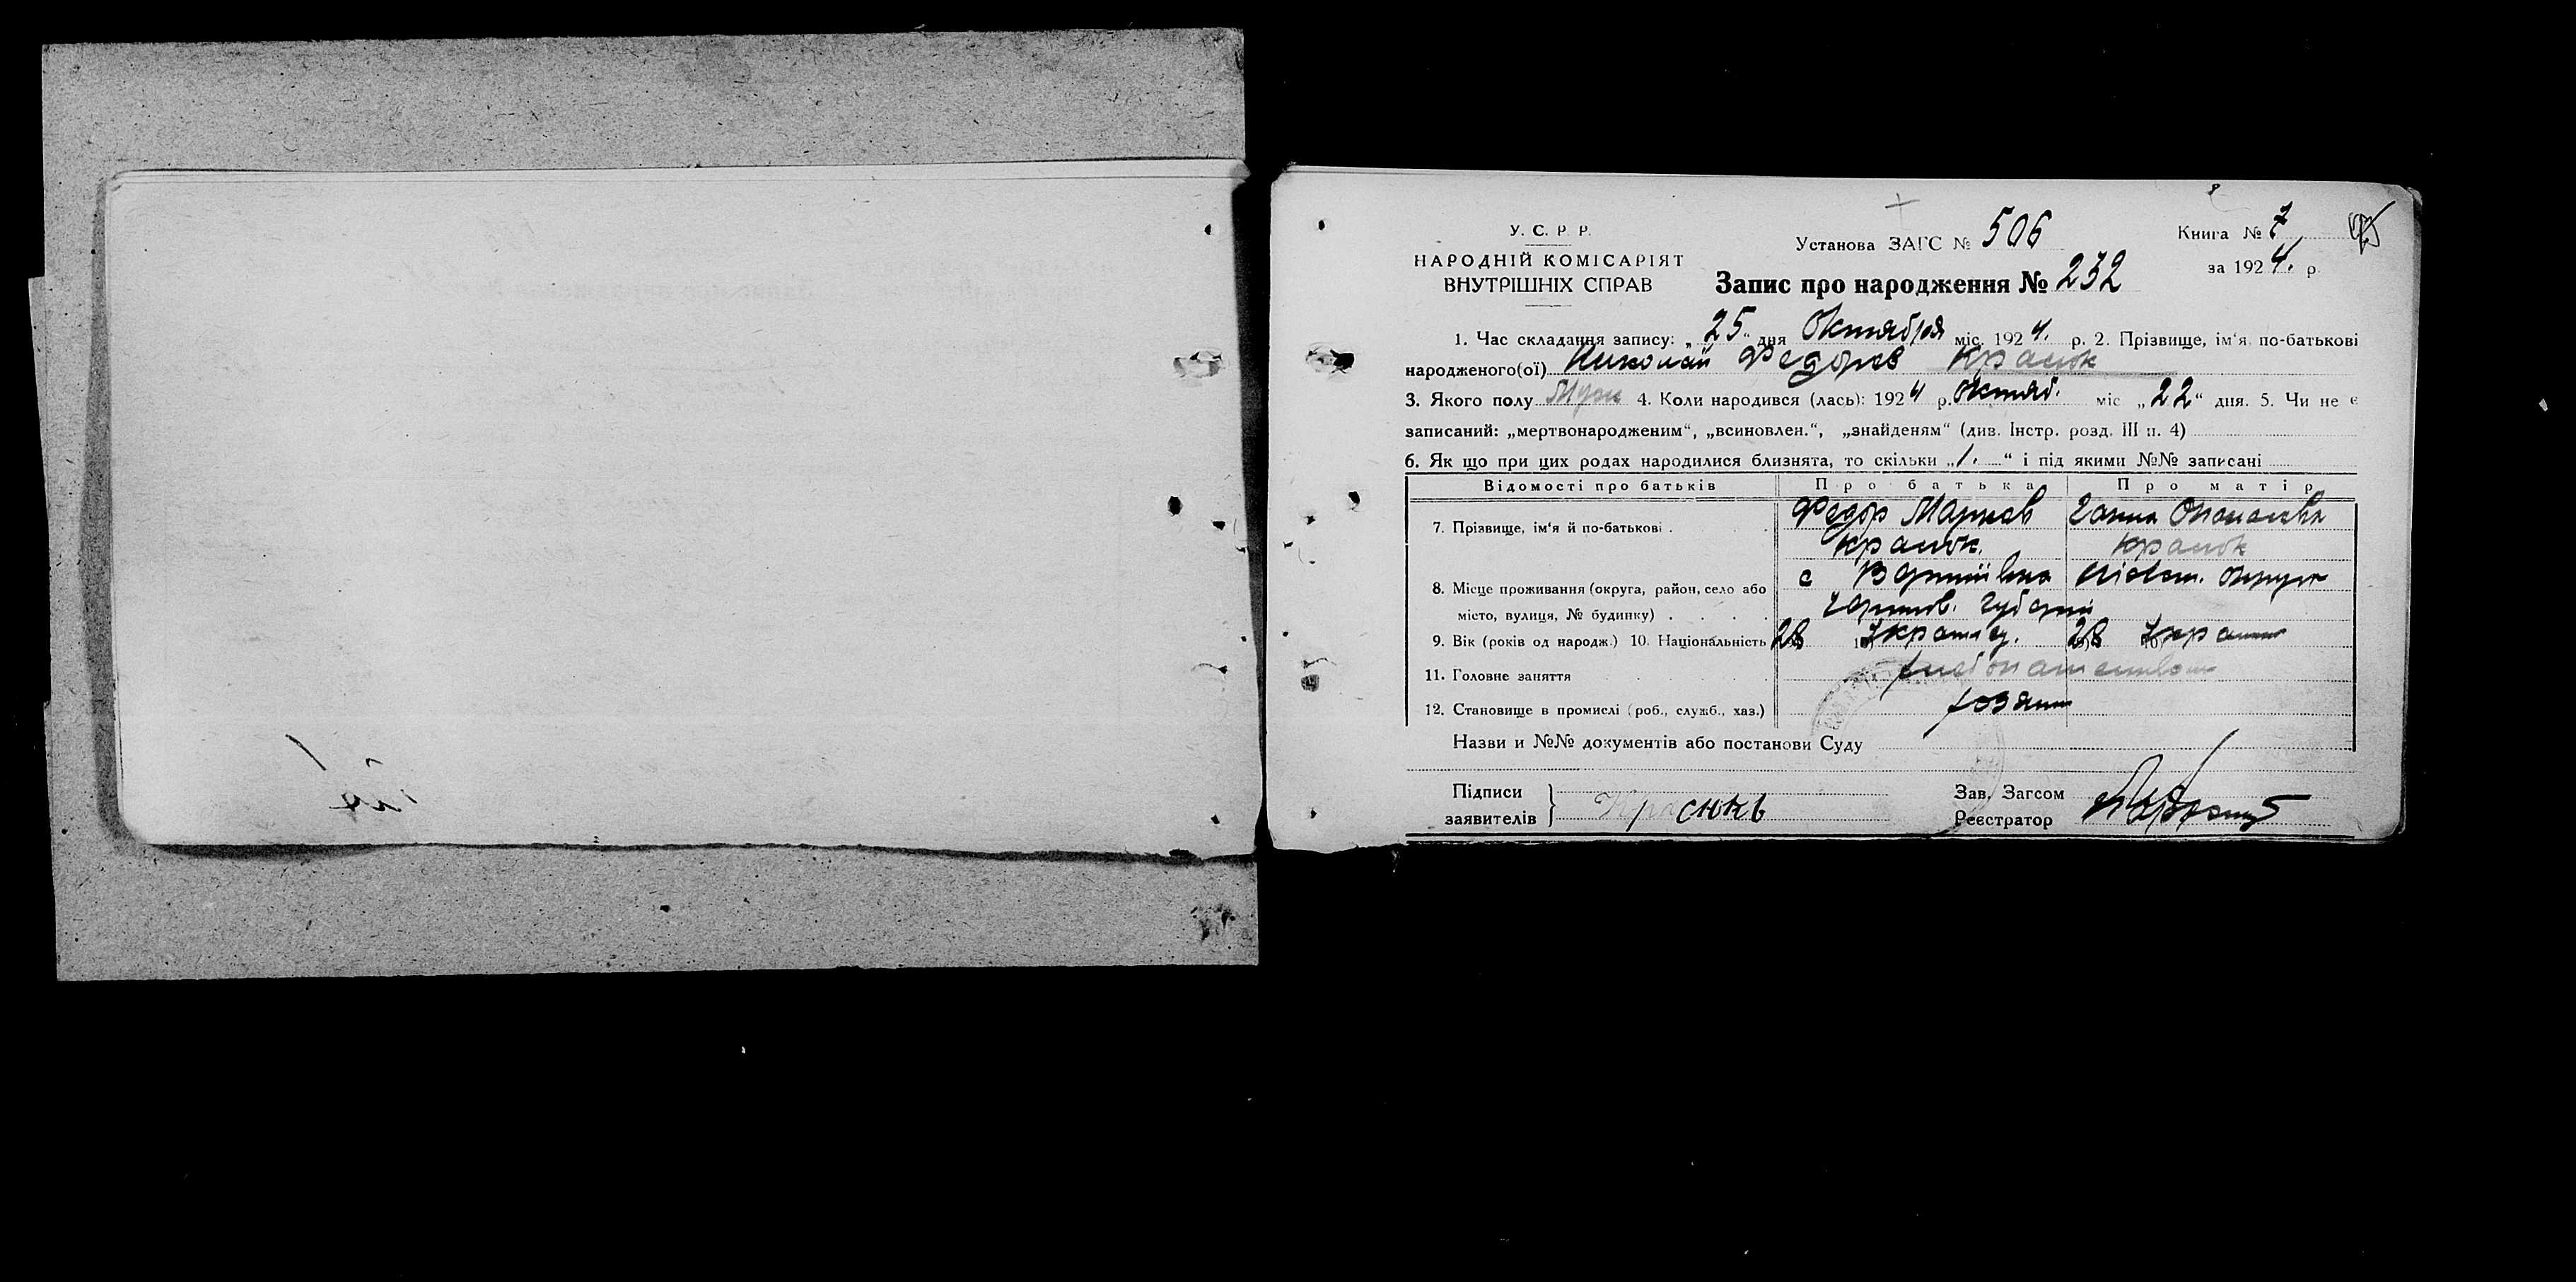 У. С. Р. Р.
НАРОДНІЙ КОМІСАРІЯТ
ВНУТРІШНІХ СПРАВ
Установа ЗАГС № 506
Книга № 7
за 1924. р.
Запис про народження № 232
1. Час складання запису: „25“ дня Октября міс. 1924. р. 2. Прізвище, ім‘я, по-батькові
народженого(ої) Николай Федоров
3. Якого полу Муж 4. Коли народився (лась): 1924 р. Октяб. міс „22“ дня. 5. Чи не є
записаний: „мертвонародженим“, „всиновлен.“, „знайденям“ (див. Інстр. розд. III п. 4)
6. Як що при цих родах народилися близнята, то скільки „1.“ і під якими №№ записані
Відомості про батьків Про батька Про матір
7. Прізвище, ім‘я й по-батькові . Федор Марков Ганна
8. Місце проживання (округа, район, село або с
місто, вулиця, № будинку) . . . .
9. Вік (років од народж.) 10. Національність 28 10) 28 10)
11. Головне заняття
12. Становище в промислі (роб., служб., хаз.)
Назви и №№ документів або постанови Суду
Підписи
заявителів
Красюкъ
Зав. Загсом
Реєстратор